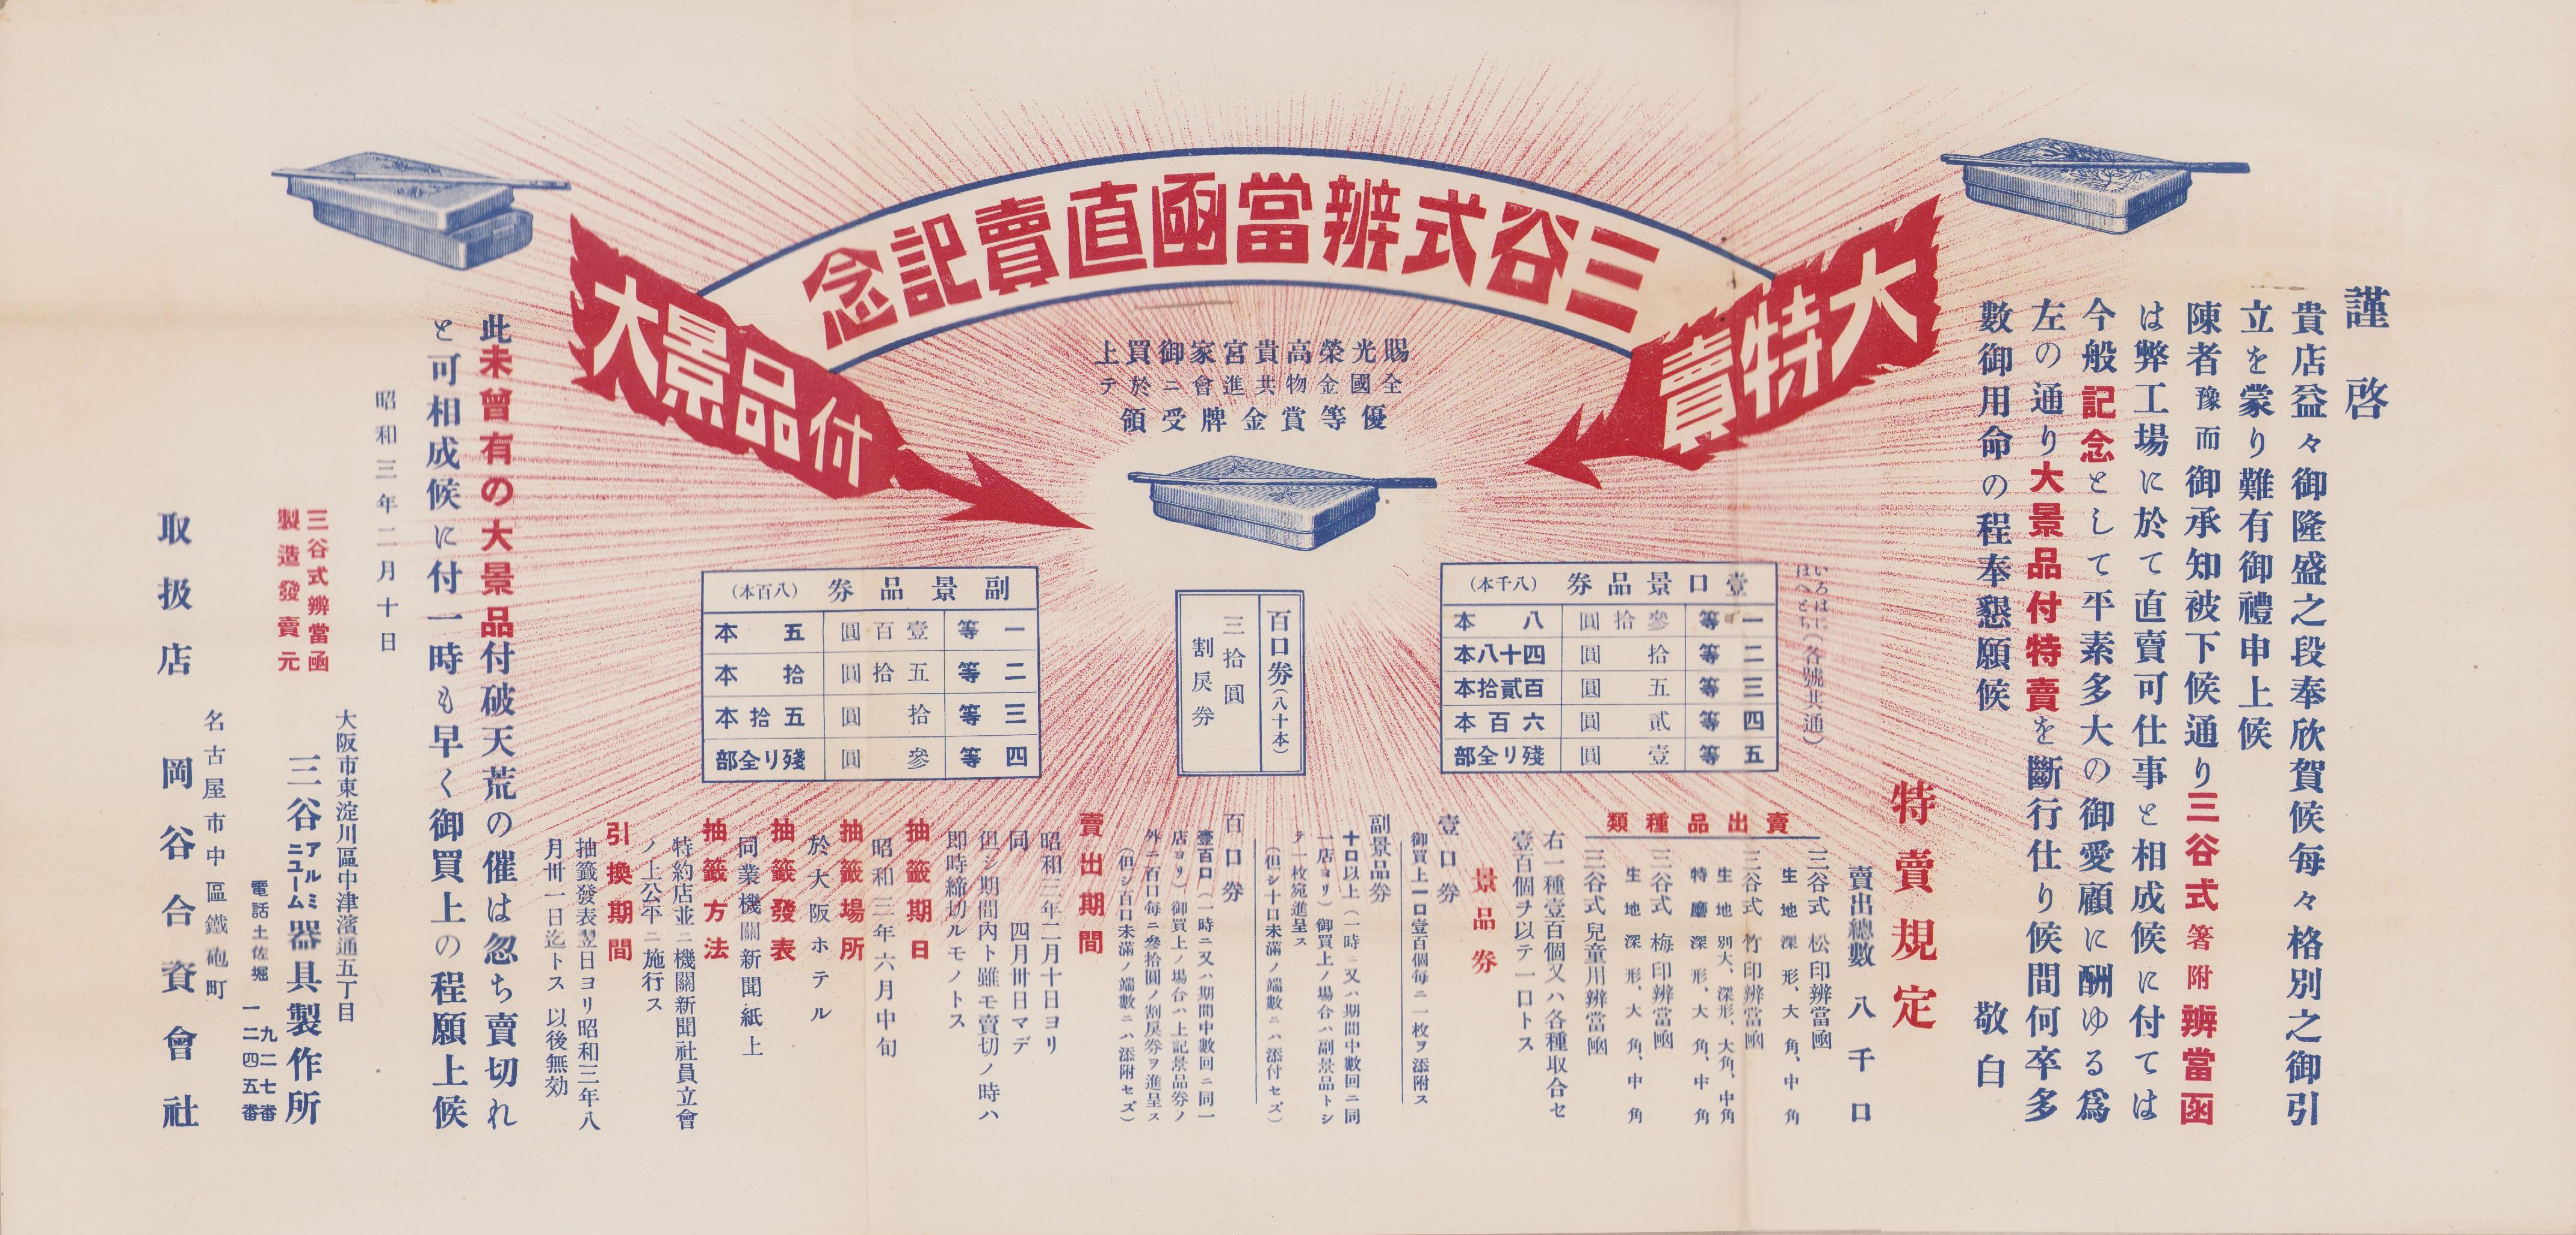 三谷式辨當凾直賣記念
大特賣
大景品付
賜光榮高貴宮家御買上
全國金物共進會ニ於テ
優等賞金牌受領
謹啓
貴店益々御隆盛之段奉欣賀候每々格別之御引
立を蒙り難有御禮申上候
陳者豫而御承知被下候通り三谷式箸附辨當函
は弊工場に於て直賣可仕事と相成候に付ては
今般記念として平素多大の御愛顧に酬ゆる爲
左の通り大景品付特賣を斷行仕り候間何卒多
數御用命の程奉懇願候
敬白
特賣規定
賣出總數 八千口
賣出品種類
三谷式 松印辨當凾
生地深形、大角、中角
三谷式 竹印辨當凾
生地別大、深形、大角、中角
特磨深形、大角、中角
三谷式 梅印辨當凾
生地深形、大角、中角
三谷式兒童用辨當凾
右一種壹百個又ハ各種取合セ
壹百個ヲ以テ一口トス
景品券
壹口券
御買上一口壹百個每ニ一枚ヲ添附ス
副景品券
十口以上(一時ニ又ハ期間中數回ニ同
一店ヨリ)御買上ノ場合ハ副景品トシ
テ一枚宛進呈ス
(但シ十口未滿ノ端數ニハ添付セズ)
百口券
壹百口(一時ニ又ハ期間中數回ニ同一
店ヨリ)御買上ノ場合ハ上記景品券ノ
外ニ百口每ニ參拾圓ノ割戾券ヲ進呈ス
(但シ百口未滿ノ端數ニハ添附セズ)
いろはに(各號共通)
ほへとち
壹口景品券(八千本)
一等 參拾圓 八本
二等 拾圓 四十八本
三等 五圓 百貳拾本
四等 貳圓 六百本
五等 壹圓 殘リ全部
百口券(八十本)
三拾圓
割戾券
副景品券(八百本)
一等 壹百圓 五本
二等 五拾圓 拾本
三等 拾圓 五拾本
四等 參圓 殘リ全部
賣出期間
昭和三年二月十日ヨリ
同 四月卅日マデ
但シ期間內ト雖モ賣切ノ時ハ
即時締切ルモノトス
抽籤期日
昭和三年六月中旬
抽籤場所
於大阪ホテル
抽籤發表
同業機關新聞紙上
抽籤方法
特約店並ニ機關新聞社員立會
ノ上公平ニ施行ス
引換期間
抽籤發表翌日ヨリ昭和三年八
月卅一日迄トス 以後無効
此未曾有の大景品付破天荒の催は忽ち賣切れ
と可相成候に付一時も早く御買上の程願上候
昭和三年二月十日
大阪市東淀川區中津濱通五丁目
三谷式辨當函
製造發賣元
三谷アルミニューム器具製作所
電話土佐堀 九二七番
一二四五番
名古屋市中區鐵砲町
取扱店 岡谷合資會社